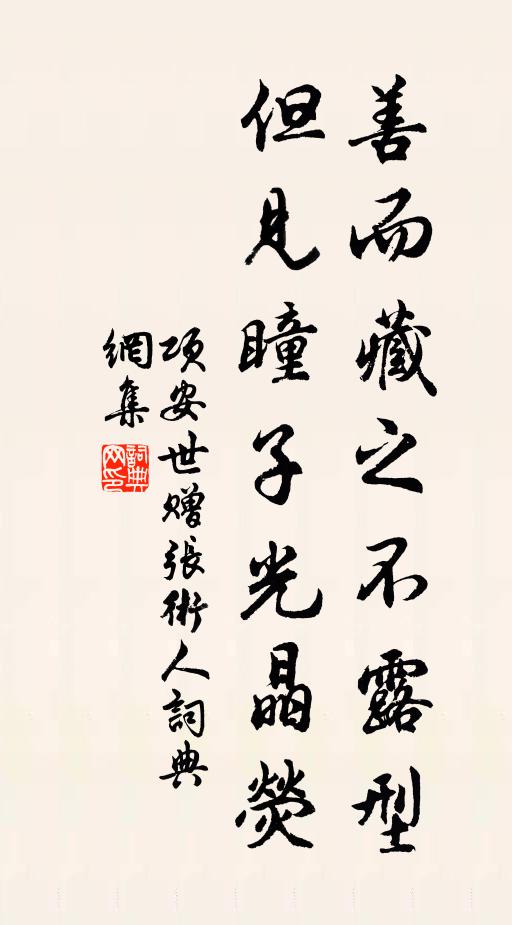 善而藏之不露型
但見瞳子光晶熒
項安世贈張術人詞典
網集
詞典
网印